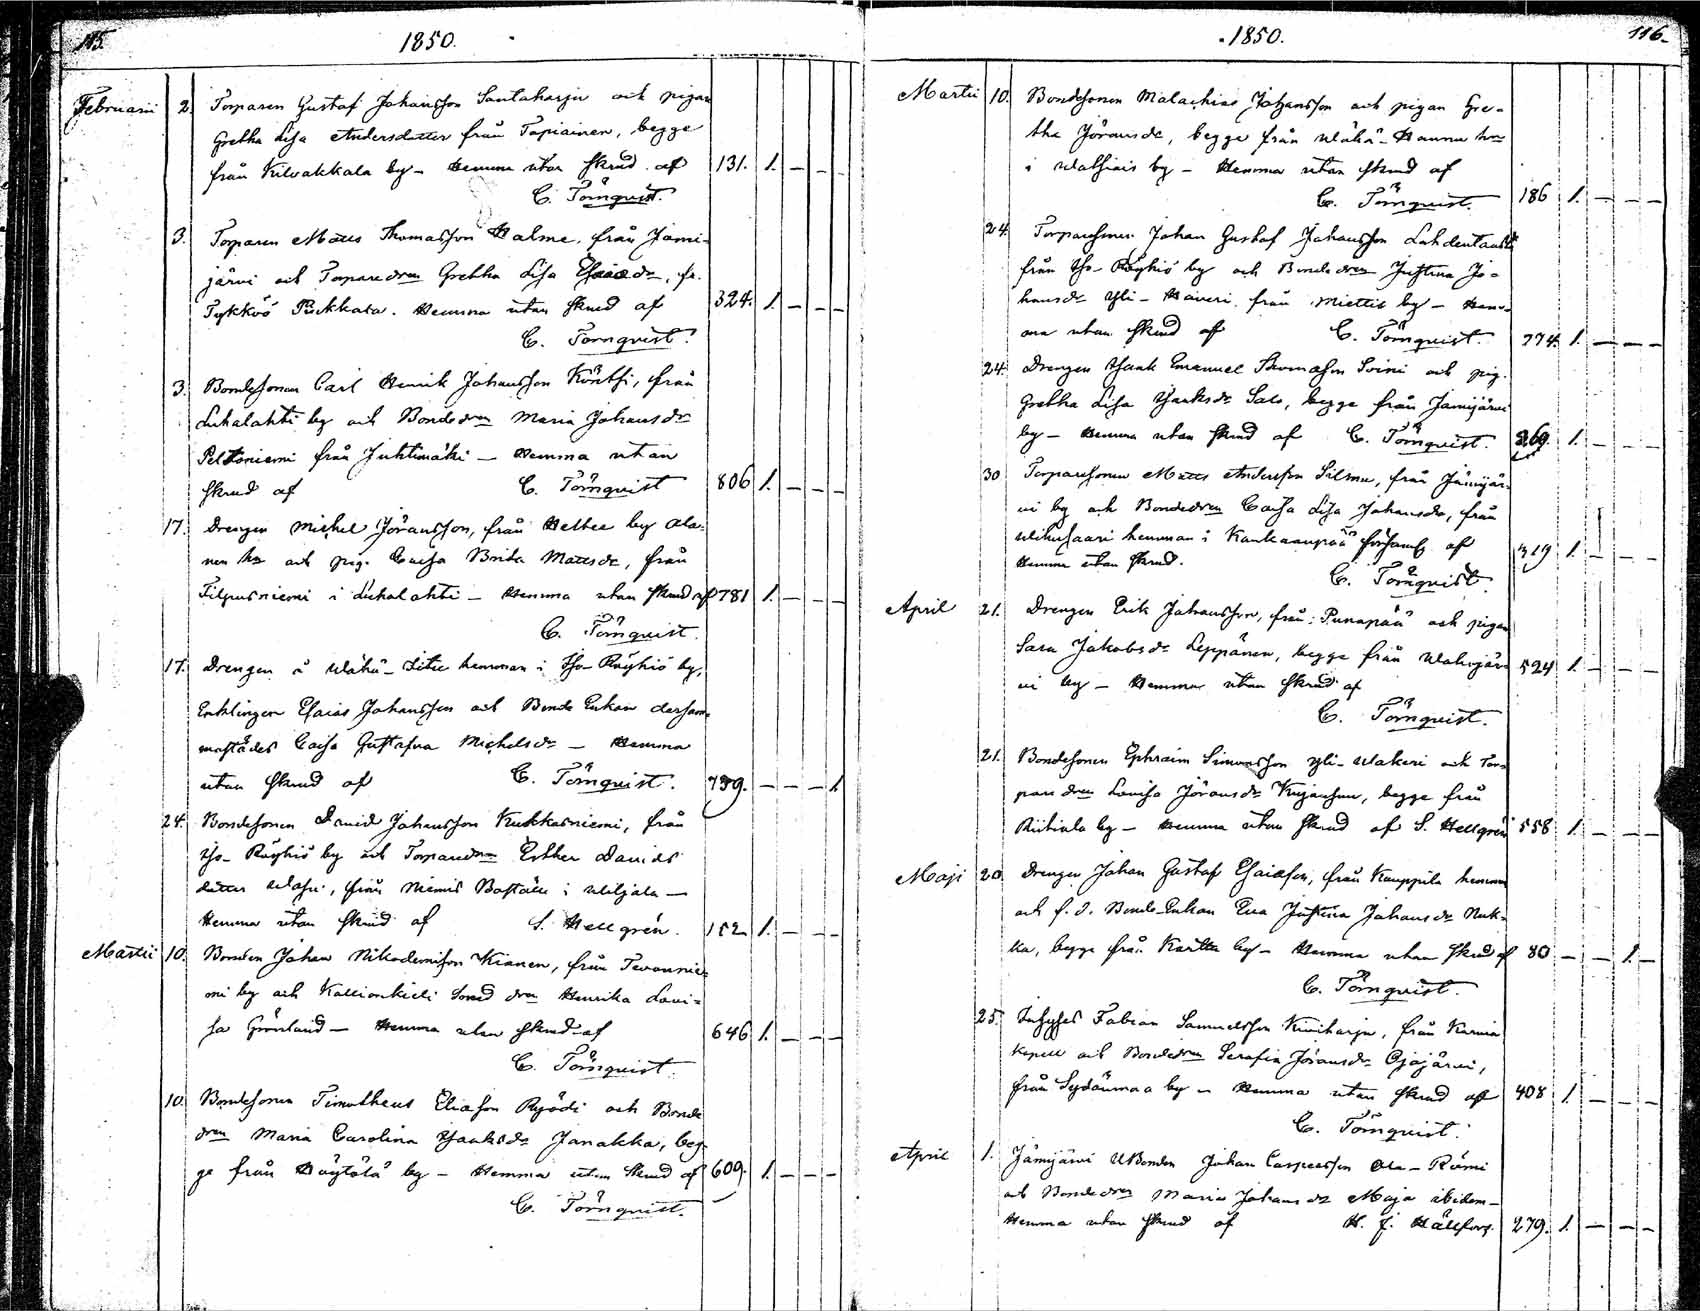 115.
1850.
Februarii 2. Torparen Gustaf Johansson Santaharju och pigan
Gretha Lisa Andersdotter från Tapiainen, begge
från Kilvakkala by - Hemma utan skrud af 131. 1. - - -
C. Törnqvist.
3. Torparen Matts Thomasson Halme, från Jämi-
järvi och Torpare dren Gretha Lisa Esaiædr, fr.
Tykköö Puckkara. Hemma utan skrud af 324. 1. - - -
C. Törnqvist.
3. Bondesonen Carl Henrik Johansson Köntsi, från
Luhalahti by och Bondedren Maria Johansdr
Peltoniemi från Juhtimäki - Hemma utan
skrud af C. Törnqvist 806 1. - - -
17. Drengen Michel Jöransson, från Heltee by Ala-
nen hn och pig. Caisa Brita Mattsdr, från
Filpusniemi i Luhalahti - Hemma utan skrud af 781 1. - - -
C. Törnqvist.
17. Drengen å Wähä-Situ hemman i Iso-Röyhiö by,
Enklingen Esaias Johansson och Bonde Enkan dersam-
mastädes Caisa Gustafva Michelsdr - Hemma
utan skrud af C. Törnqvist. 739. - - - 1.
24. Bondesonen David Johansson Kukkasniemi, från
Iso-Röyhiö by och Torparedren Esther Davids
dotter, från Niemis Boställe i Wiljala -
Hemma utan skrud af S. Hellgrén. 152 1. - - -
Martii 10. Bonden Johan Nikodemisson Kianen, från Tevannie-
mi by och dren Henrika Lovi-
sa Grönlund - Hemma utan skrud af 646 1. - - -
C. Törnqvist.
10. Bondesonen Timotheus Eliasson Ryödi och Bonde
dren Maria Carolina Isaksdr Janakka, beg-
ge från Höytölä by - Hemma utan skrud af 609. 1. - - -
C. Törnqvist.
1850.
116.
Martii 10. Bondesonen Malachias Johansson och pigan Gre-
tha Jöransdr, begge från Wähä-Hannu hn
i Watsiais by - Hemma utan skrud af
C. Törnqvist. 186 1. - - -
24. Torparesonen Johan Gustaf Johansson Lahdentausta
från Iso-Röyhiö by och Bondedren Justina Jo-
hansdr Yli-Haveri från Miettis by - Hem-
ma utan skrud af C. Törnqvist. 774. 1. - - -
24. Drengen Isaak Emanuel Thomasson Soini och pig.
Gretha Lisa Isaksdr Salo, begge från Jämijärvi
by - Hemma utan skrud af C. Törnqvist. 269 1. - - -
30 Torparesonen Matts Andersson Silmu, från Jämijär-
vi by och Bondedren Caisa Lisa Johansdr, från
Wihusaari hemman i Kankaanpää församl. af 319 1. - - -
Hemma utan skrud.
C. Törnqvist.
April 21. Drengen Erik Johansson, från Punapää och pigan
Sara Jakobsdr Leppänen, begge från Wahojär- 524 1. - - -
vi by - Hemma utan skrud af
C. Törnqvist.
21. Bondesonen Ephraim Simonsson Yli-Wakeri och Tor-
pare dren Lovisa Jöransdr Kujansuu, begge från
Riitiala by - Hemma utan skrud af S. Hellgrén 558 1. - - -
Maji 20. Drengen Johan Gustaf Esaiasson, från Kauppila hemman
och f.d. Bonde-Enkan Eva Justina Johansdr Nuk-
ka, begge från Karttu by - Hemma utan skrud af 80 - - 1. -
C. Törnqvist.
25. Fabian Samuelsson Kiviharju, från Karvia
Kapell och Bondedren Serafia Jöransdr Ojajärvi,
från Sydänmaa by - Hemma utan skrud af 408 1. - - -
C. Törnqvist.
April 1. Jämijärvi Bonden Johan Caspersson Ala-Rämi
och Bondedren Maria Johansdr Maja ibidem -
Hemma utan skrud af H. J. Hällfors. 279. 1. - - -